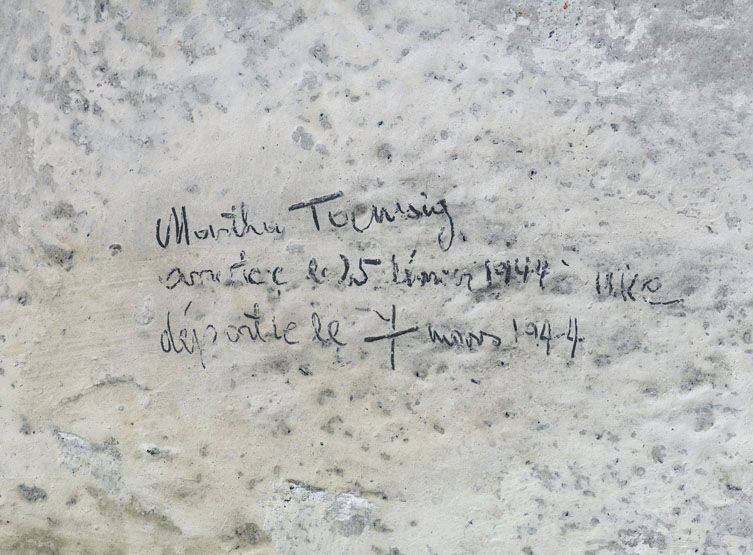 Martha Taussig
arretée le 25 février 1944 à Nice
déportée le 7 mars 1944